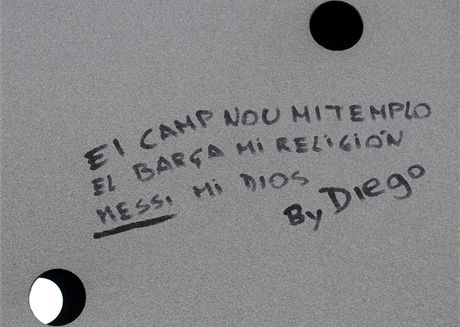 El CAMP NOU MI TEMPLO
EL BARÇA MI RELIGIÓN
MESSI MI DIOS
By Diego